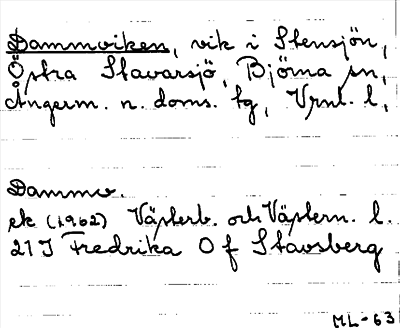 Dammviken, vik i Stensjön,
Östra Stavarsjö, Björna sn,
Ångerm. n. doms. tg, Vrnl. l,
Dammv.
ek (1962) Västerb. och Västern. l.
21 J Fredrika O f Stavsberg
ML-63